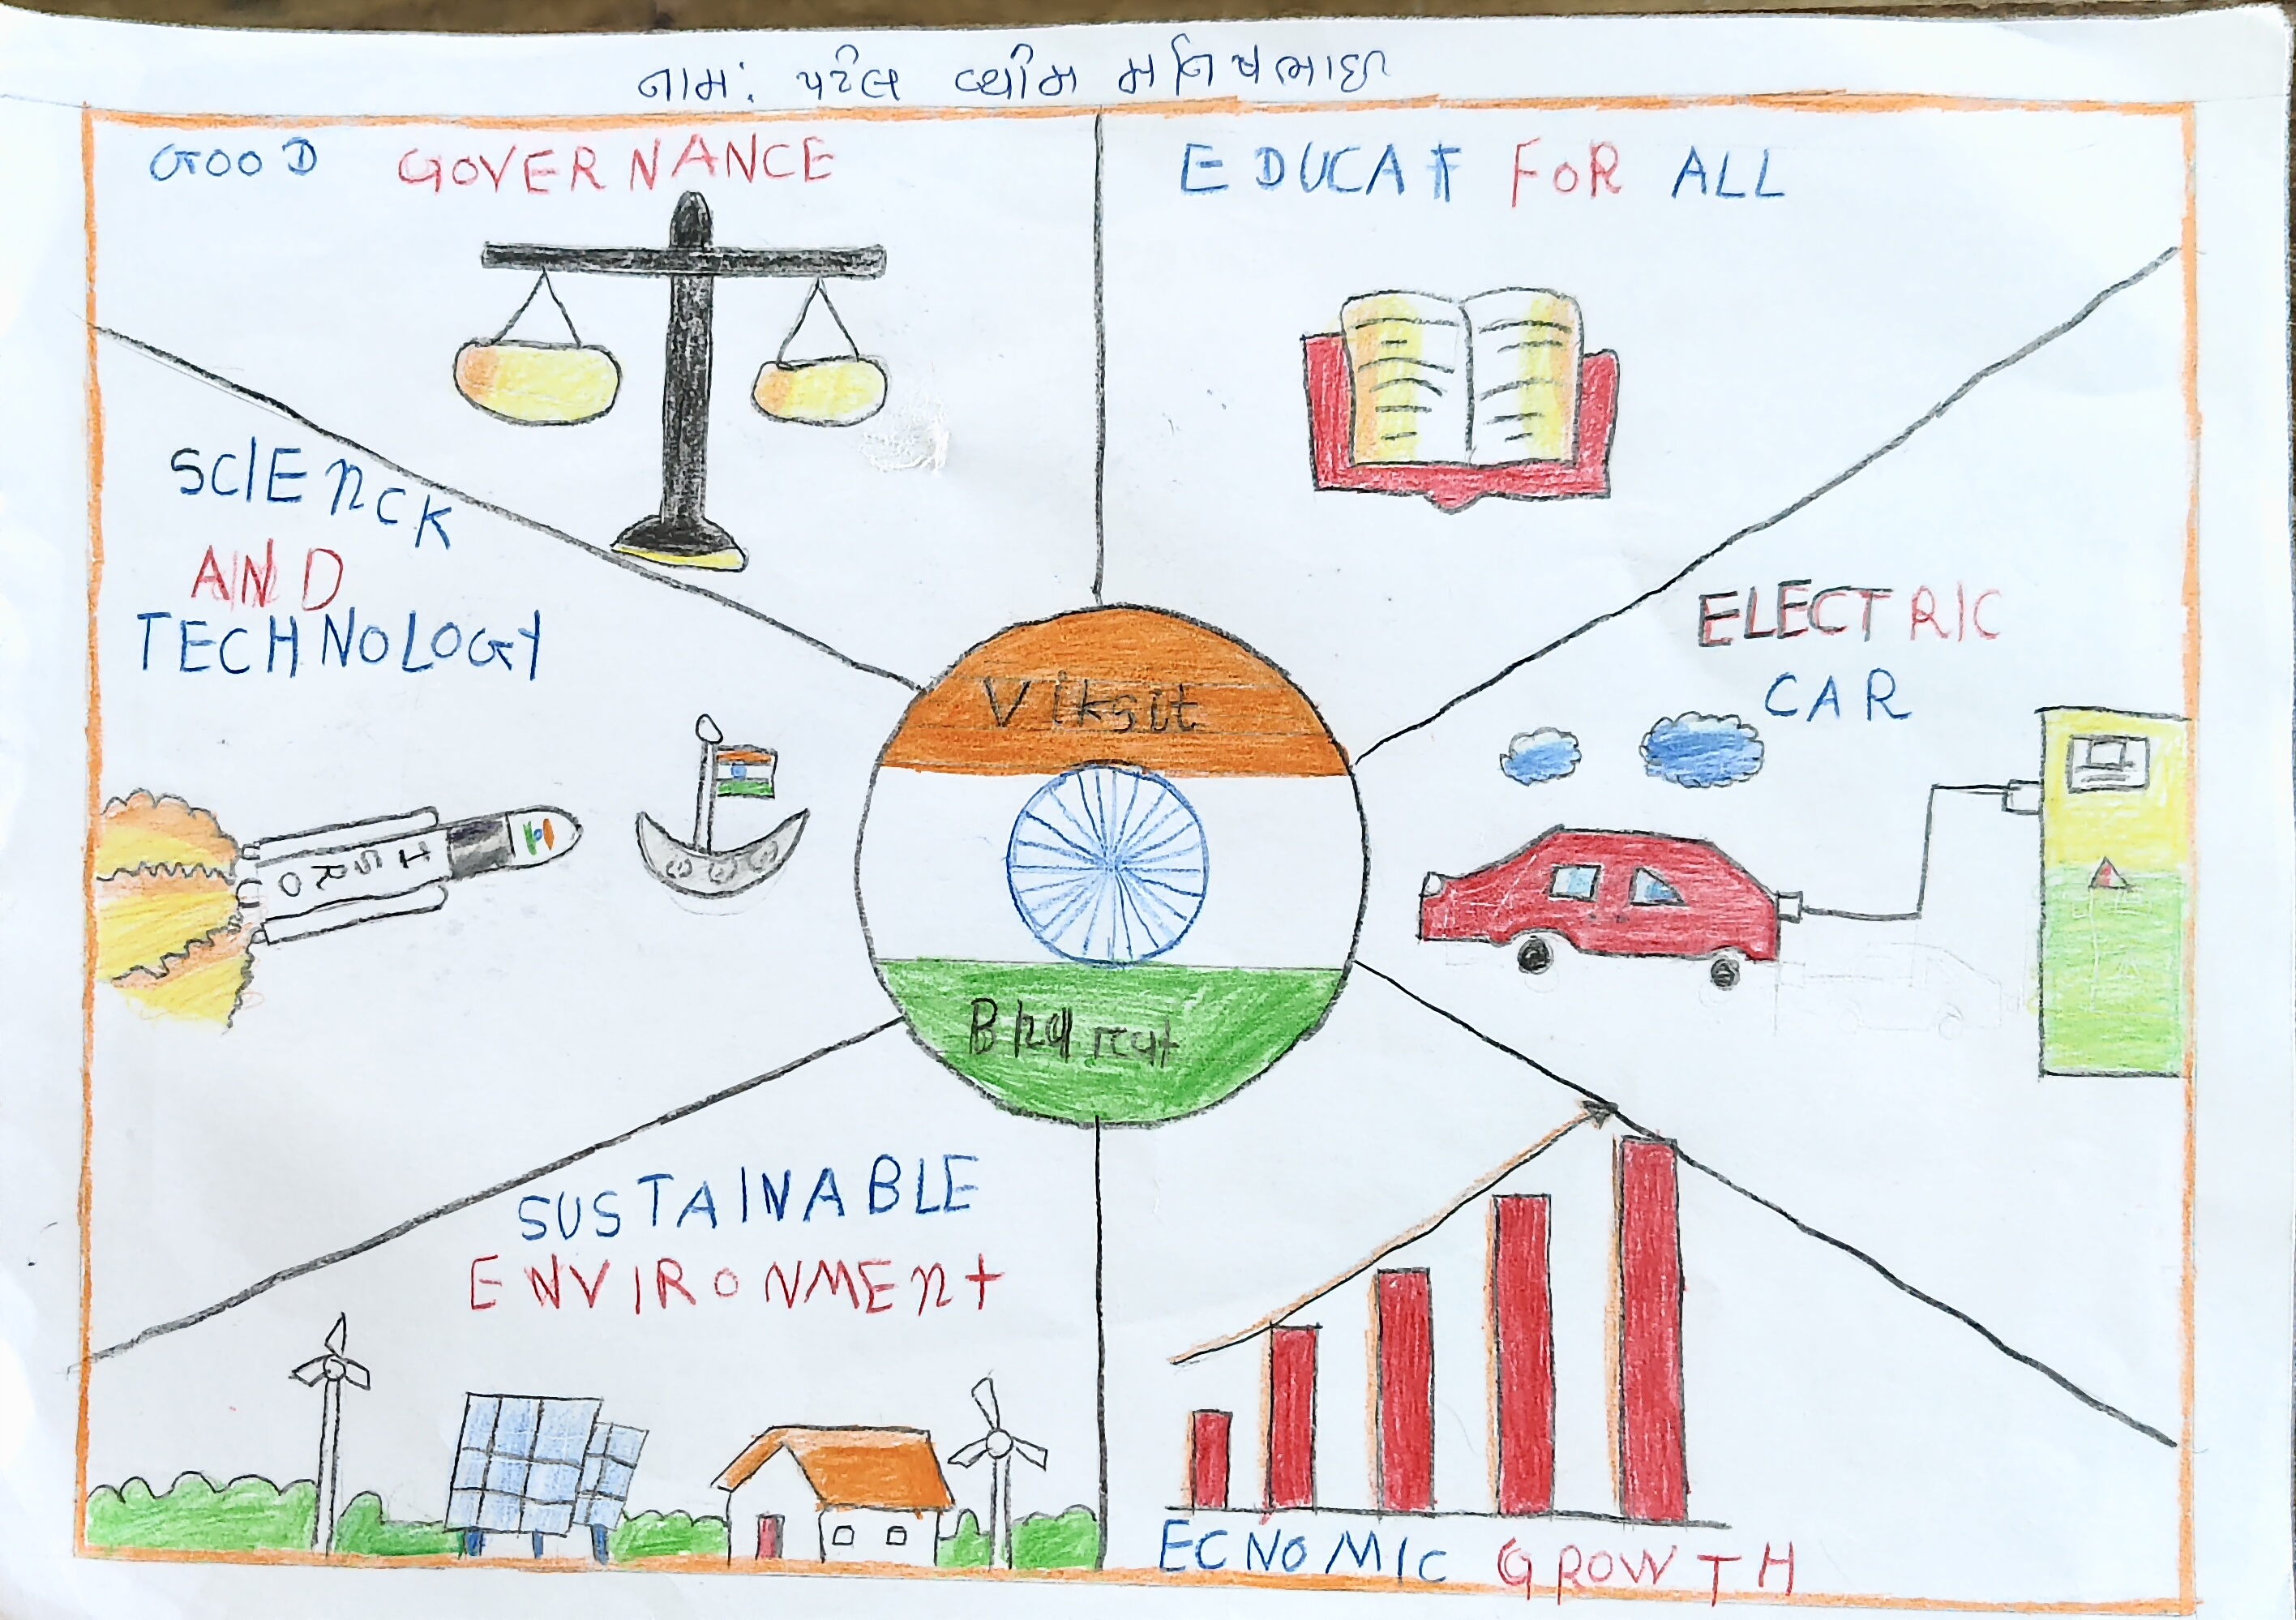 નામ: પટેલ વ્યોમ મનિષભાઇ
GOOD GOVERNANCE
EDUCAT FOR ALL
SCIENCK
AND
TECHNOLOGY
ELECTRIC
CAR
Viksit
Bharat
ISRO
SUSTAINABLE
ENVIRONMENt
ECNOMIC GROWTH